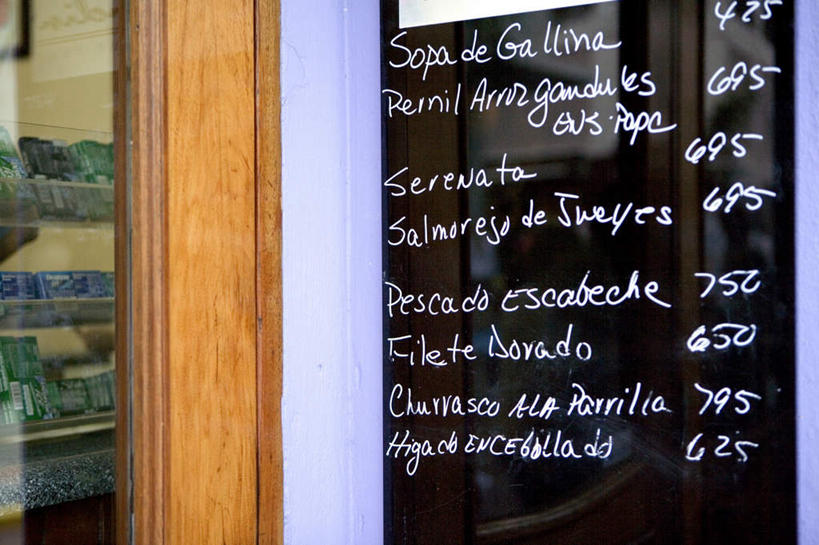 425
Sopa de Gallina
Pernil Arroz gandules 695
ENS. Papa
Serenata 695
Salmorejo de Jueyes 695
Pescado Escabeche 750
Filete Dorado 650
Churrasco ALA Parrilla 795
Higado ENCEbollado 625